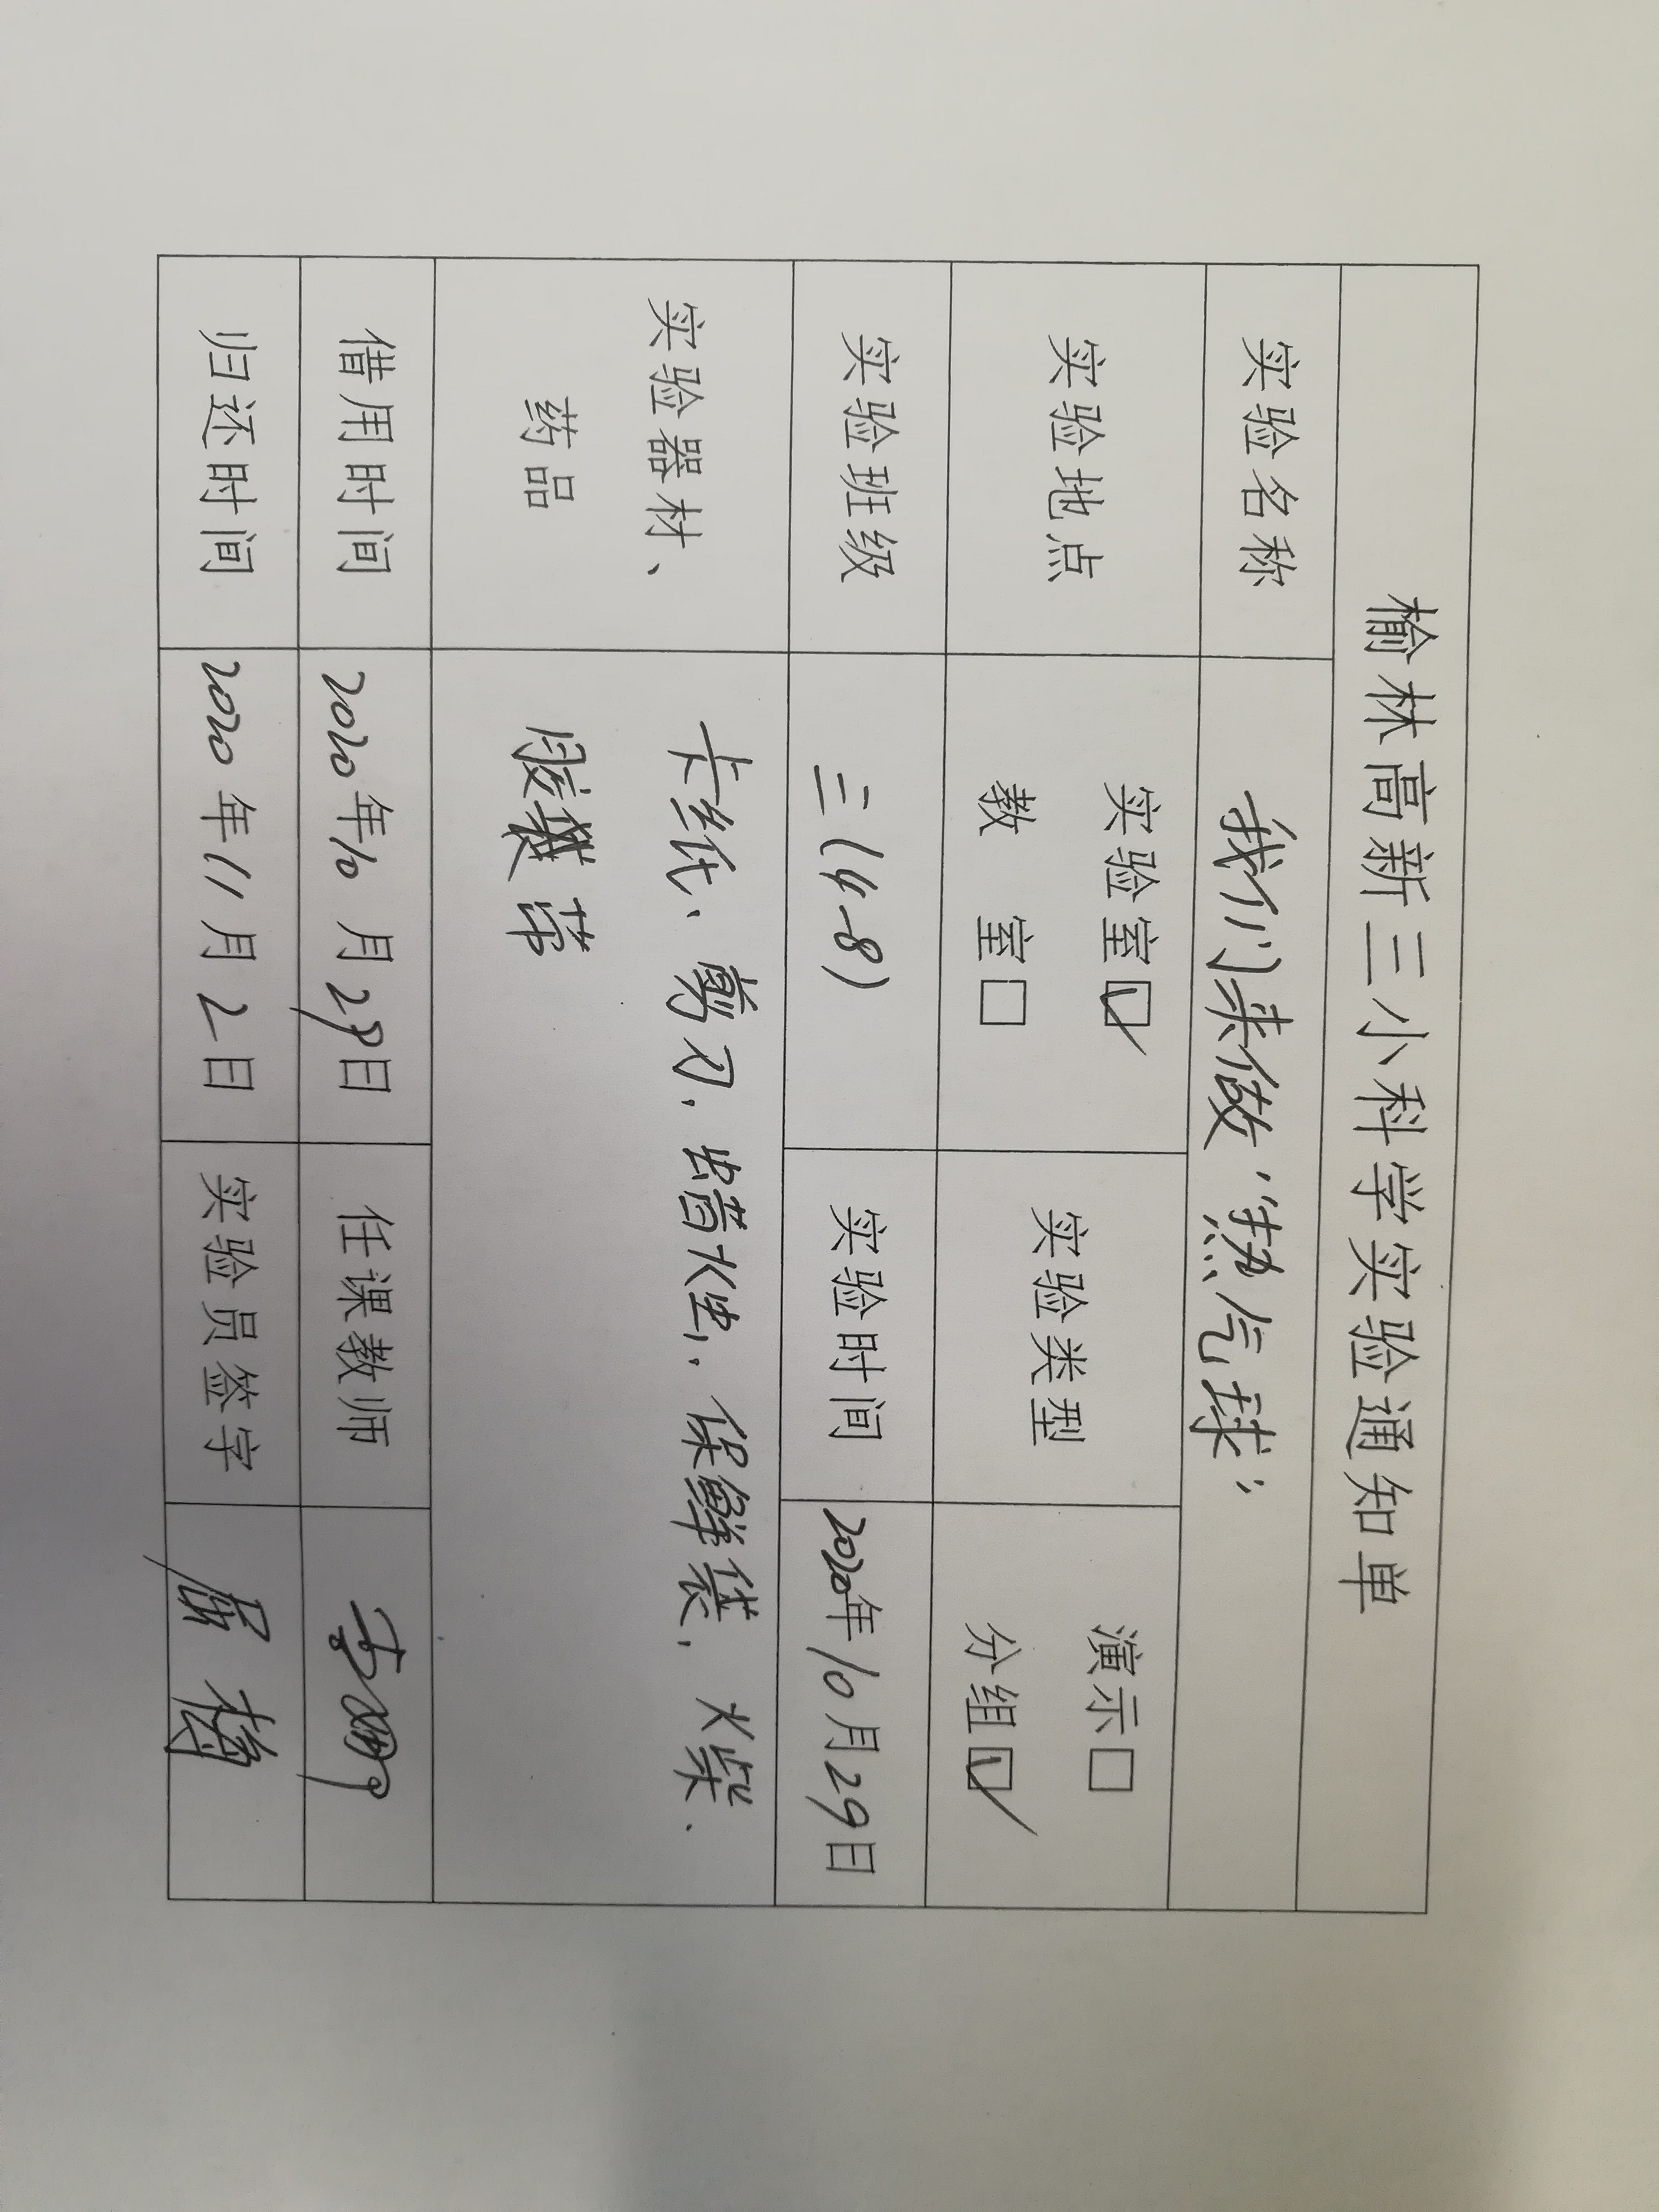 榆林高新三小科学实验通知单
实验名称 我们来做“热气球”
实验地点 实验室☑ 教 室□ 实验类型 演示□ 分组☑
实验班级 三(4-8) 实验时间 2020年10月29日
实验器材、药品 卡纸、剪刀、蜡烛、保鲜袋、火柴、
胶 带
借用时间 2020年10月29日 任课教师
归还时间 2020年11月2日 实验员签字